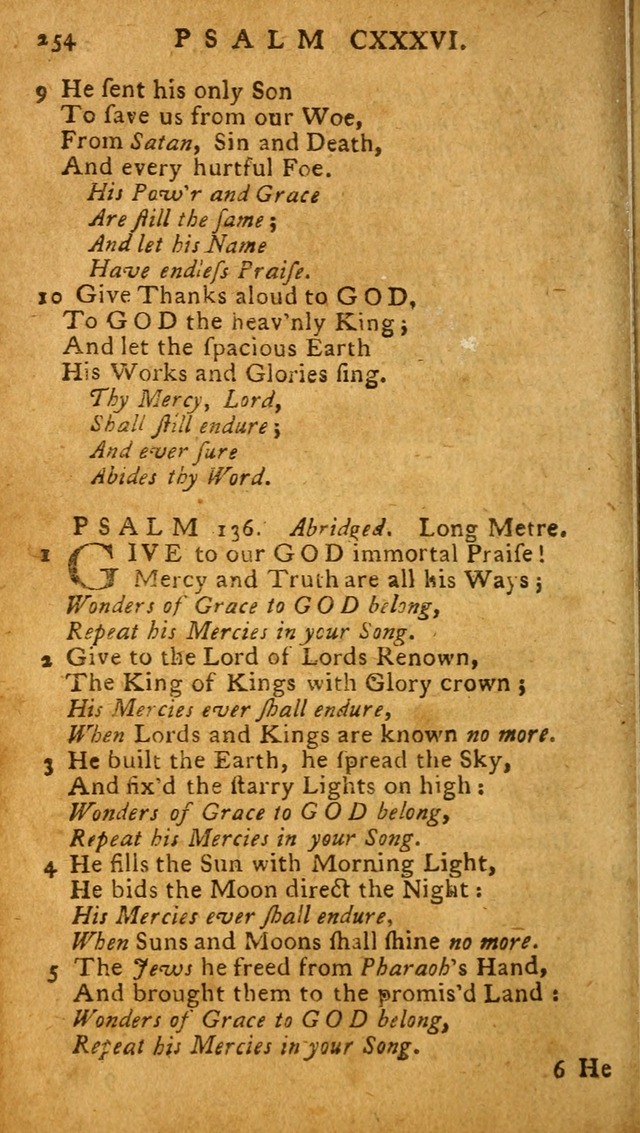 254 PSALM CXXXVI.
9 He ſent his only Son
To ſave us from our Woe,
From Satan, Sin and Death,
And every hurtful Foe.
His Pow'r and Grace
Are ſtill the ſame;
And let his Name
Have endleſs Praiſe.
10 Give Thanks aloud to GOD,
To GOD the heav'nly King;
And let the ſpacious Earth
His Works and Glories ſing.
Thy Mercy, Lord,
Shall ſtill endure;
And ever ſure
Abides thy Word.
PSALM 136. Abridged. Long Metre.
1 GIVE to our GOD immortal Praiſe!
Mercy and Truth are all his Ways;
Wonders of Grace to GOD belong,
Repeat his Mercies in your Song.
2 Give to the Lord of Lords Renown,
The King of Kings with Glory crown;
His Mercies ever ſhall endure,
When Lords and Kings are known no more.
3 He built the Earth, he ſpread the Sky,
And fix'd the ſtarry Lights on high:
Wonders of Grace to GOD belong,
Repeat his Mercies in your Song.
4 He fills the Sun with Morning Light,
He bids the Moon direct the Night:
His Mercies ever ſhall endure,
When Suns and Moons ſhall ſhine no more.
5 The Jews he freed from Pharaoh's Hand,
And brought them to the promis'd Land:
Wonders of Grace to GOD belong,
Repeat his Mercies in your Song.
6 He